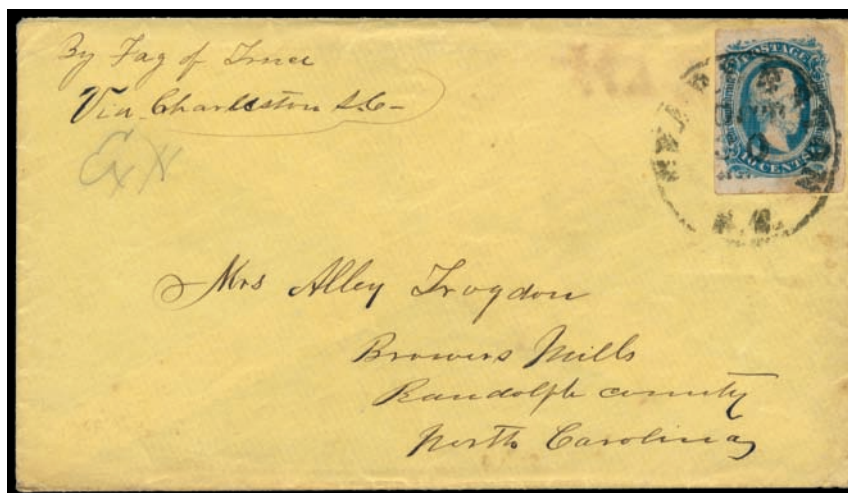 By Flag of Truce
Via Charleston S.C.
Ex
POSTAGE
10 CENTS
Mrs Alley Trogdon
Browers Mills
Randolph county
North Carolina